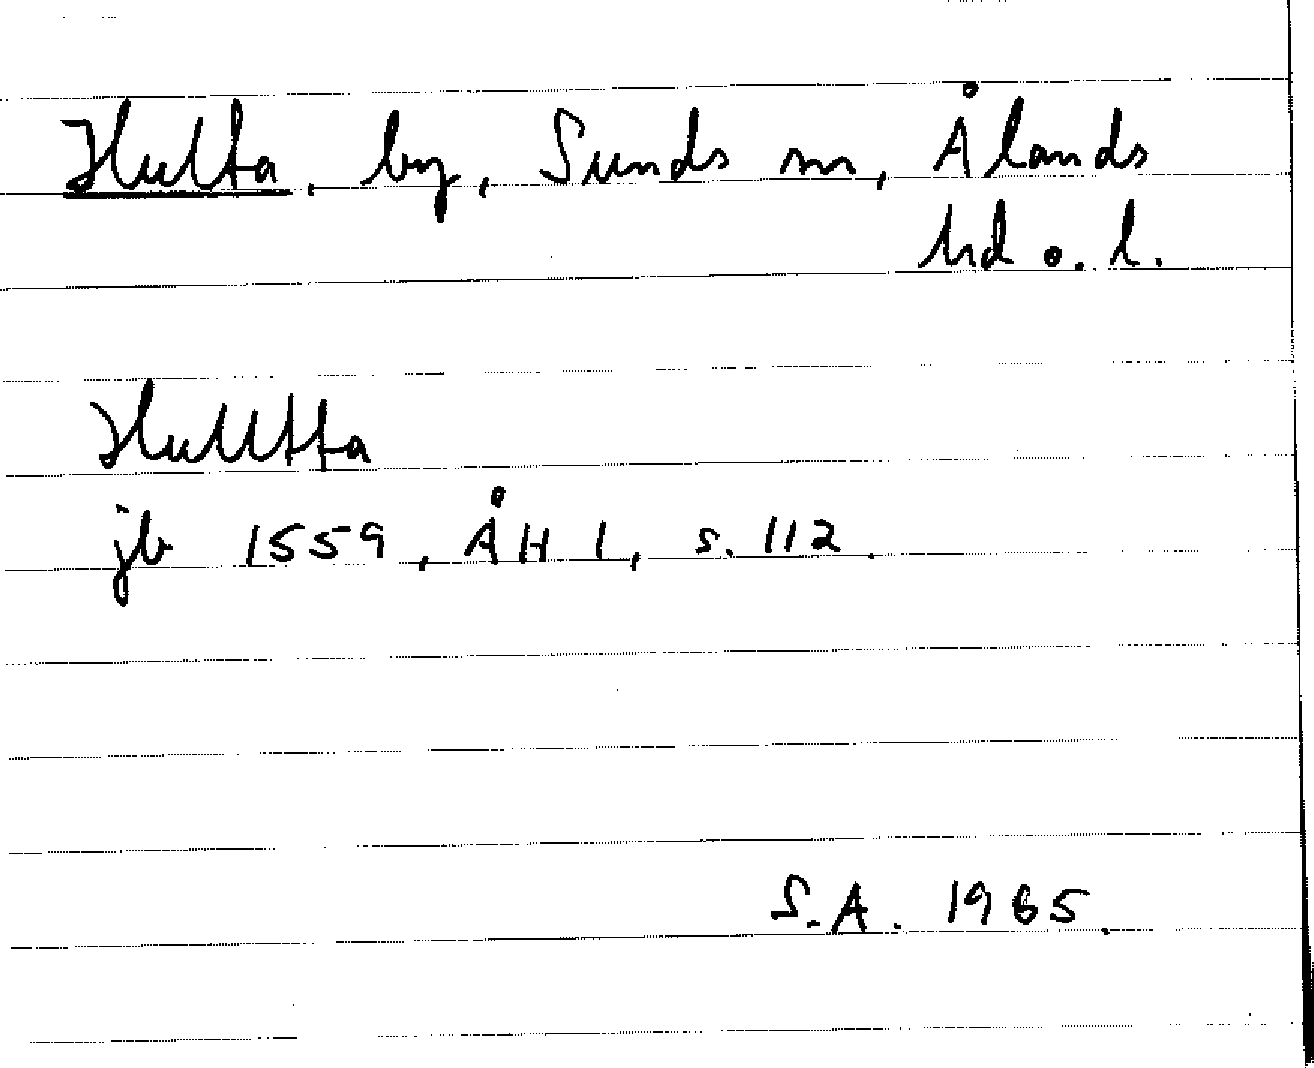 Hulta, by, Sunds sn, Ålands
hd o. l.
Hulltta
jb 1559, ÅH 1, s. 112.
S.A. 1965.